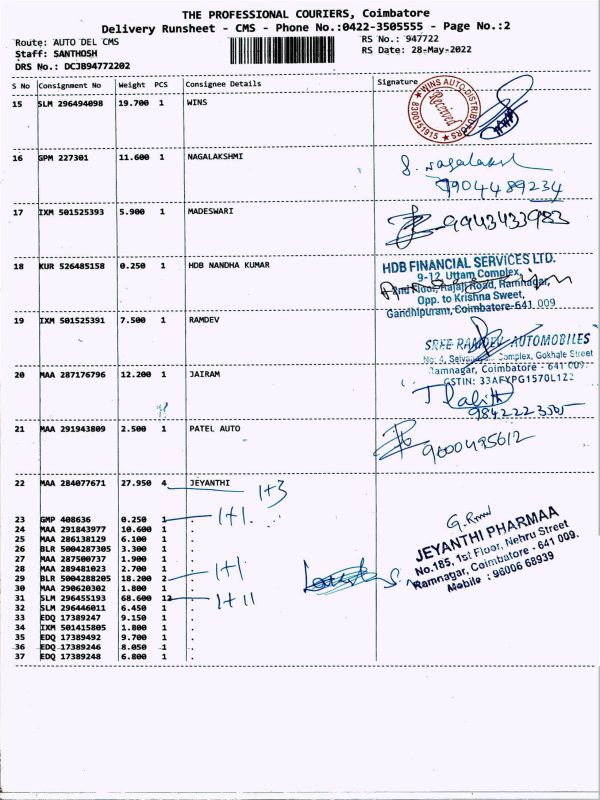 THE PROFESSIONAL COURIERS, Coimbatore
Delivery Runsheet - CMS - Phone No.:0422-3505555 - Page No.:2
Route: AUTO DEL CMS
RS No.: 947722
Staff: SANTHOSH
RS Date: 28-May-2022
DRS No.: DCJB94772202
S No Consignment No Weight PCS Consignee Details Signature
15 SLM 296494098 19.700 1 WINS
WINS AUTO DISTRIBUTORS
Received
8300151915
16 GPM 227301 11.600 1 NAGALAKSHMI
7904489234
17 IXM 501525393 5.900 1 MADESWARI
9943433983
18 KUR 526485158 0.250 1 HDB NANDHA KUMAR
HDB FINANCIAL SERVICES LTD.
9-12, Uttam Complex,
2nd Floor, Rajaji Road, Ramnagar,
Opp. to Krishna Sweet,
Gandhipuram, Coimbatore-641 009
19 IXM 501525391 7.500 1 RAMDEV
SREE RAMDEV AUTOMOBILES
No: 4, Complex, Gokhale Street
Ramnagar, Coimbatore - 641 009.
GSTIN: 33AFYPG1570L1Z2
20 MAA 287176796 12.200 1 JAIRAM
9842223505
21 MAA 291943809 2.500 1 PATEL AUTO
9600495612
22 MAA 284077671 27.950 4 JEYANTHI
1+3
23 GMP 408636 0.250 1 .
1+1.
24 MAA 291843977 10.600 1 .
25 MAA 286138129 6.100 1 .
26 BLR 5004287305 3.300 1 .
27 MAA 287500737 1.900 1 .
28 MAA 289481023 2.700 1 .
29 BLR 5004288205 18.200 2 .
1+1
30 MAA 290620302 1.800 1 .
31 SLM 296455193 68.600 12 .
1+11
32 SLM 296446011 6.450 1 .
33 EDQ 17389247 9.150 1 .
34 IXM 501415805 1.800 1 .
35 EDQ 17389492 9.700 1 .
36 EDQ 17389246 8.050 1 .
37 EDQ 17389248 6.800 1 .
JEYANTHI PHARMAA
No.185, 1st Floor, Nehru Street
Ramnagar, Coimbatore - 641 009.
Mobile : 96006 68939